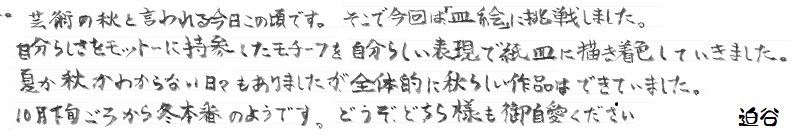 芸術の秋と言われる今日この頃です。そこで今回は「皿絵」に挑戦しました。
自分らしさをモットーに持参したモチーフを自分らしい表現で紙皿に描き着色していきました。
夏か秋かわからない日々もありましたが全体的に秋らしい作品はできていました。
10月下旬ごろから冬本番のようです。どうぞ、どちら様も御自愛ください
迫谷